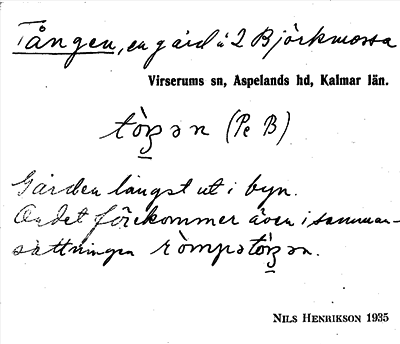 Tången, en gård å 2 Björkmossa
Virserums sn, Aspelands hd, Kalmar län.
tòŋ̱ən (Pe B)
Gården längst ut i byn.
Ordet förekommer även i samman-
sättningen ròmpətòŋ̱ən.
NILS HENRIKSON 1935